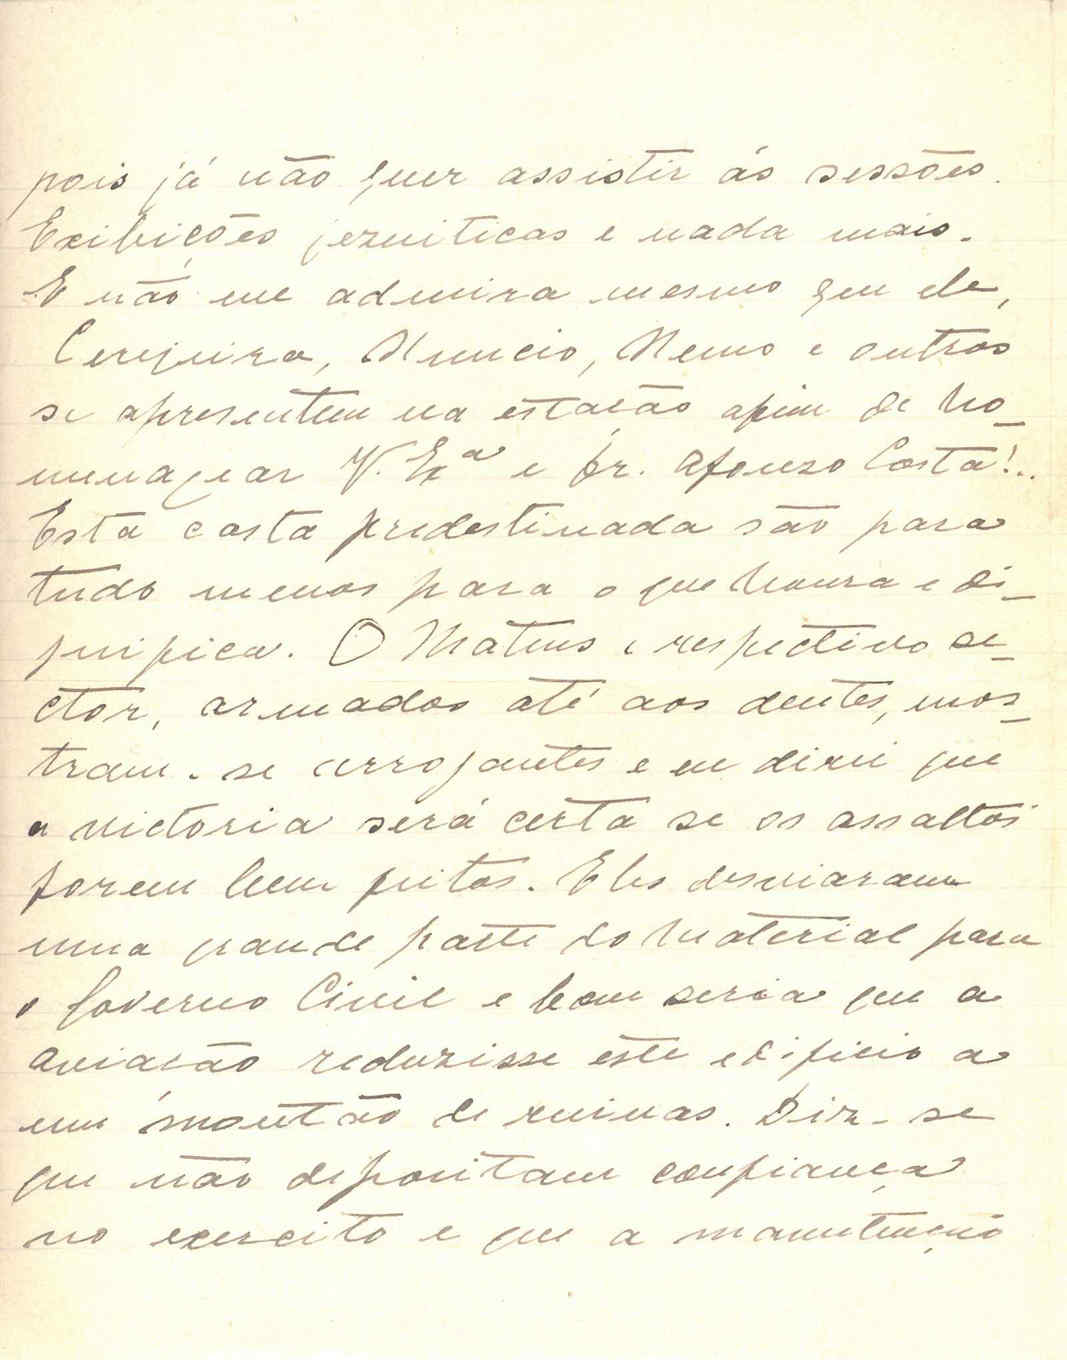 pois já não quer assistir ás sessões.
Exibições jezuiticas e nada mais.
E não me admira mesmo que ele,
Cerejeira, Nuncio, Nemo e outros
se apresentem na estação afim de ho-
menagear V. Exª e Dr. Afonso Costa!..
Esta casta predestinada são para
tudo menos para o que honra e di-
gnifica. O Mateus e respectivo se-
ctor, armados até aos dentes, mos-
tram-se arrogantes e eu direi que
a victoria será certa se os assaltos
forem bem feitos. Eles desviaram
uma grande parte do material para
o Governo Civil e bom seria que a
aviação reduzisse este edificio a
um montão de ruinas. Diz-se
que não depositam confiança
no exercito e que a manutenção